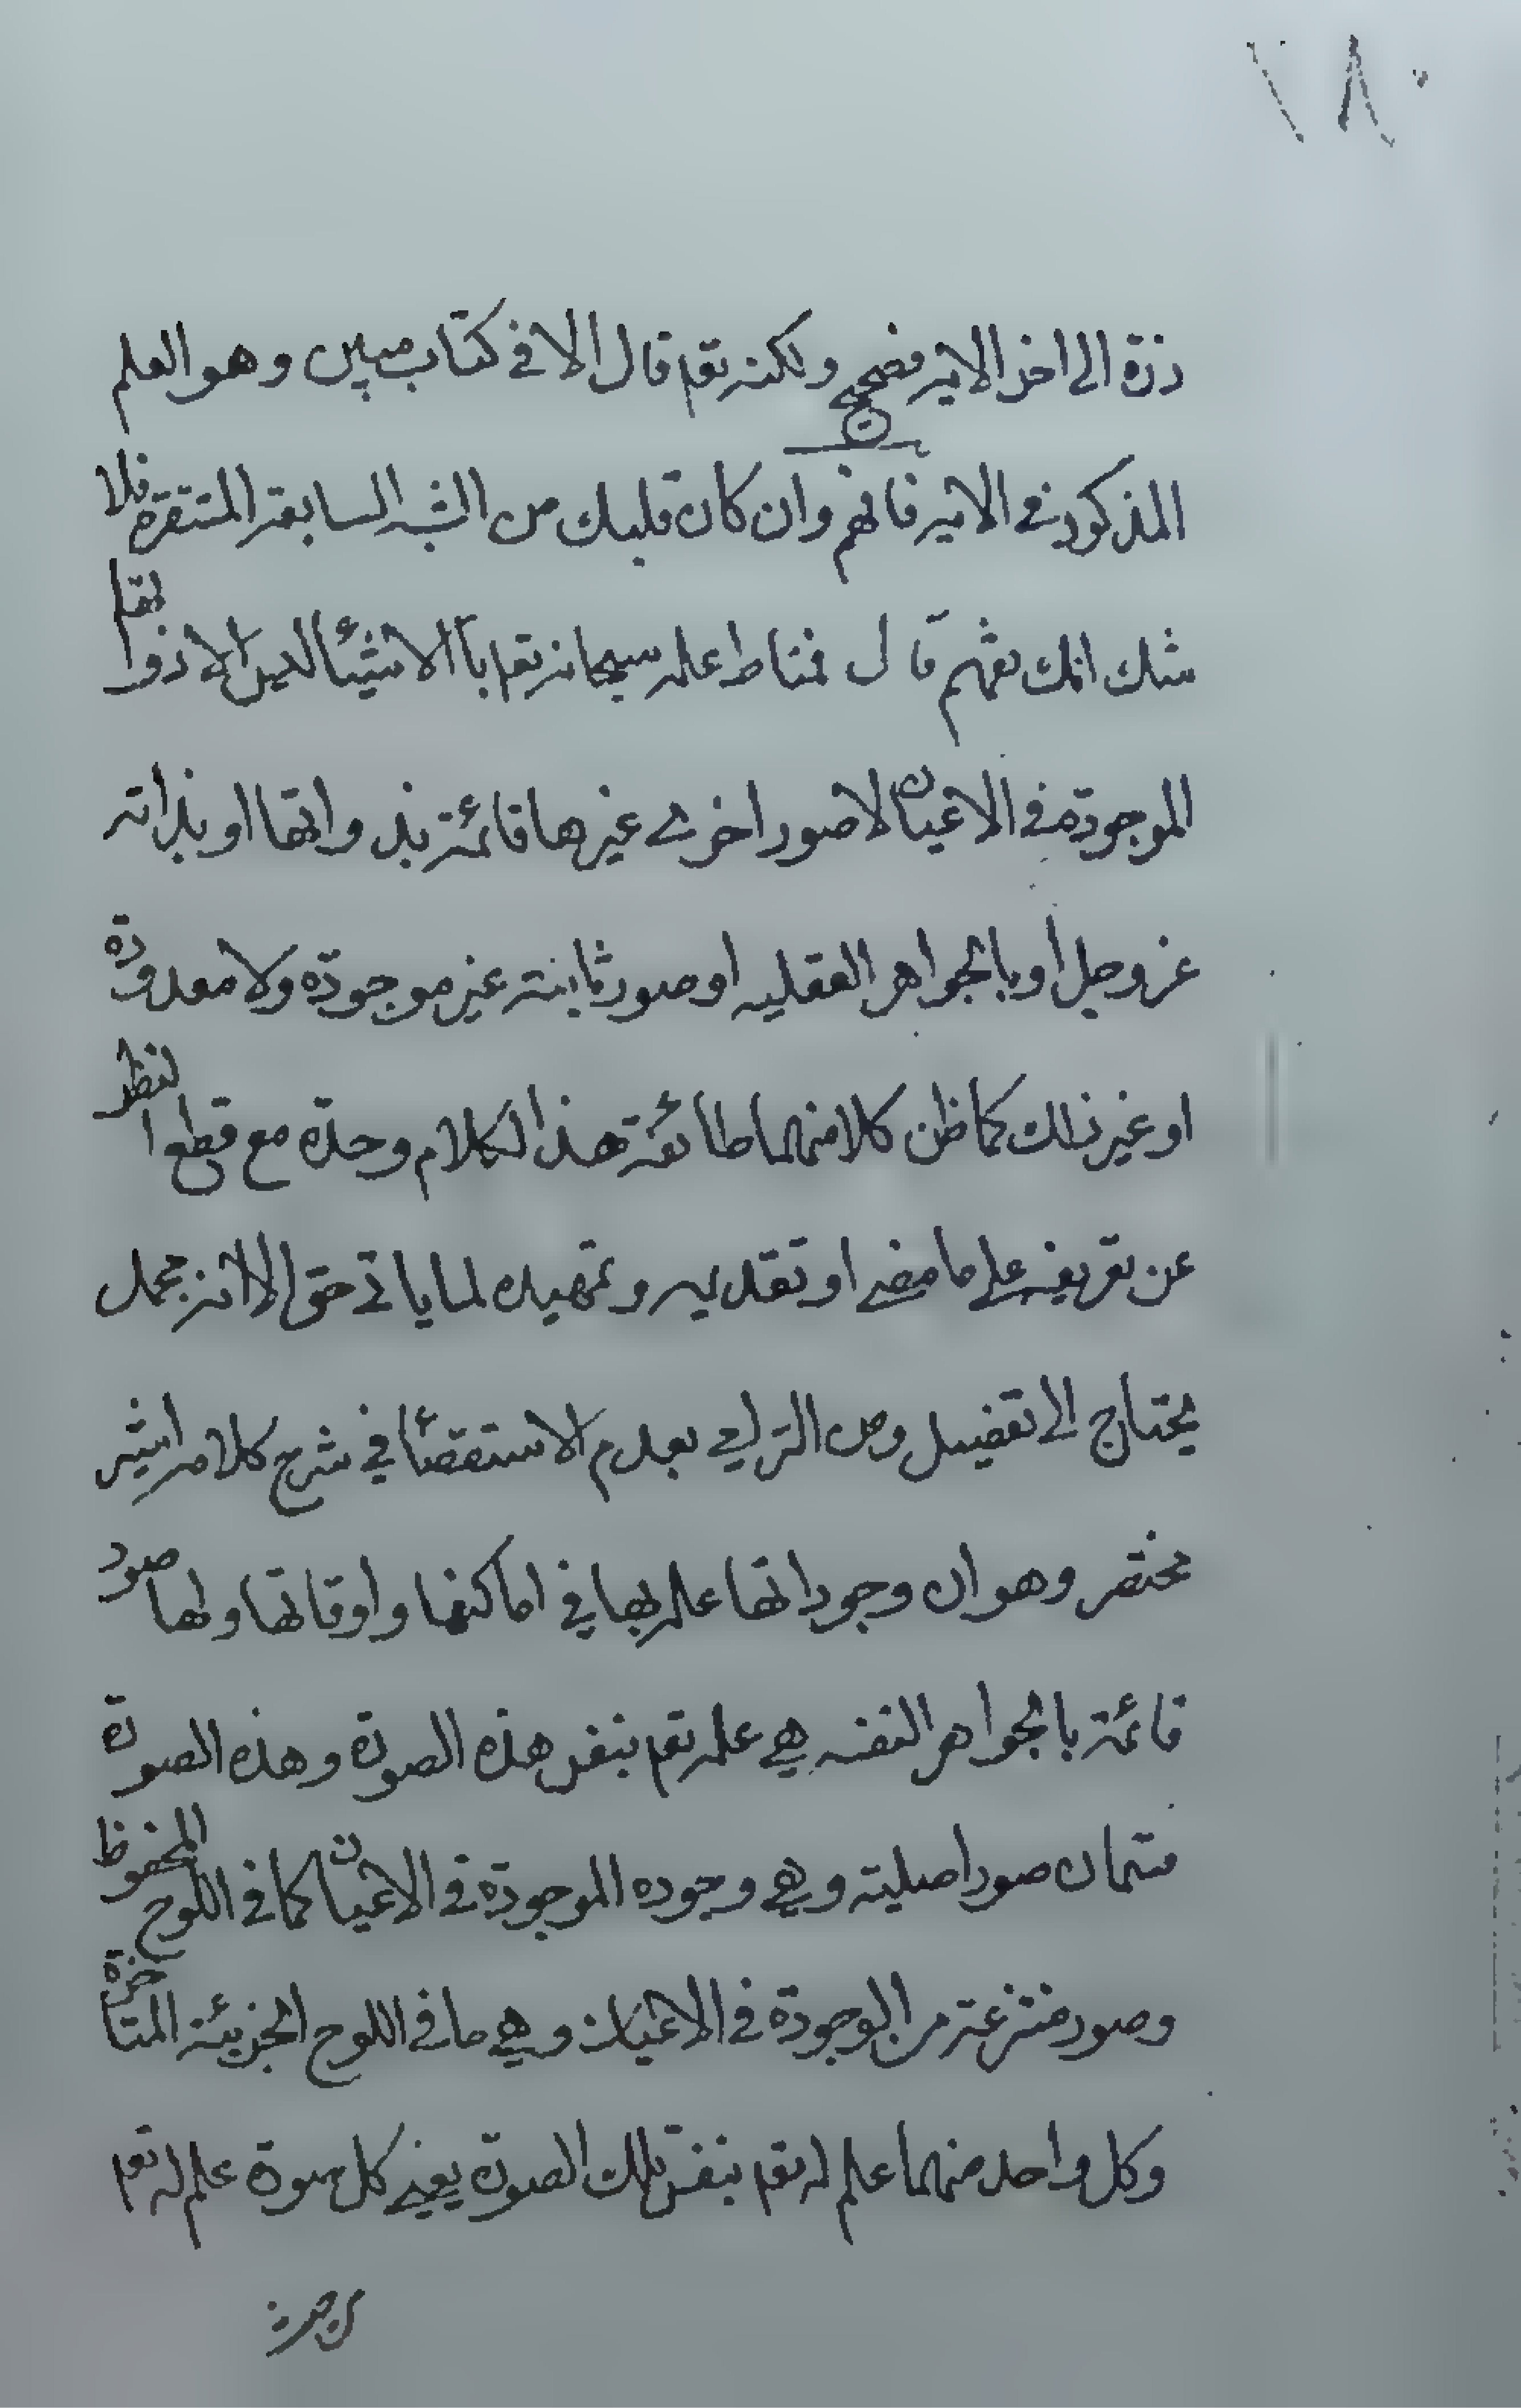 ١٨٠
ذرة الى اخر الاية فصحيح ولكنه تعم قال الا في كتاب مبين وهو العلم
المذكور في الاية فافهم وان كان قلبك من الشبه السابقة المستقرة فلا
شك انك تفهم قال فمناط علمه سبحانه تعم بالاشياء ليس الا ذواتها
الموجودة في الاعيان لا صور اخرى غيرها قائمة بذواتها او بذاته
عز وجل او بالجواهر العقليه او صور ثابتة غير موجودة ولا معدودة
او غير ذلك كما ظن كلا منهما طائفة هذا الكلام وحده مع قطع النظر
عن تعريفه على ما مضى او تقديره وتمهيده لما ياتي حق الا انه مجمل
يحتاج الى تفصيل ومن التراجي بعدم الاستقصاء في شرح كلامه اشير
مختصر وهو ان وجوداتها علمه بها في اماكنها واوقاتها ولها صور
قائمة بالجواهر النفسه هي علمه تعم بنفس هذه الصورة وهذه الصورة
قسمان صور اصلية وهي وجوده الموجودة في الاعيان كما في اللوح المحفوظ
وصور منتزعة من الوجودة في الاعيان وهي ما في اللوح الجزيئة المتاخرة
وكل واحد منهما علم له تعم بنفس تلك الصورة يعني كل صورة علم له تعم